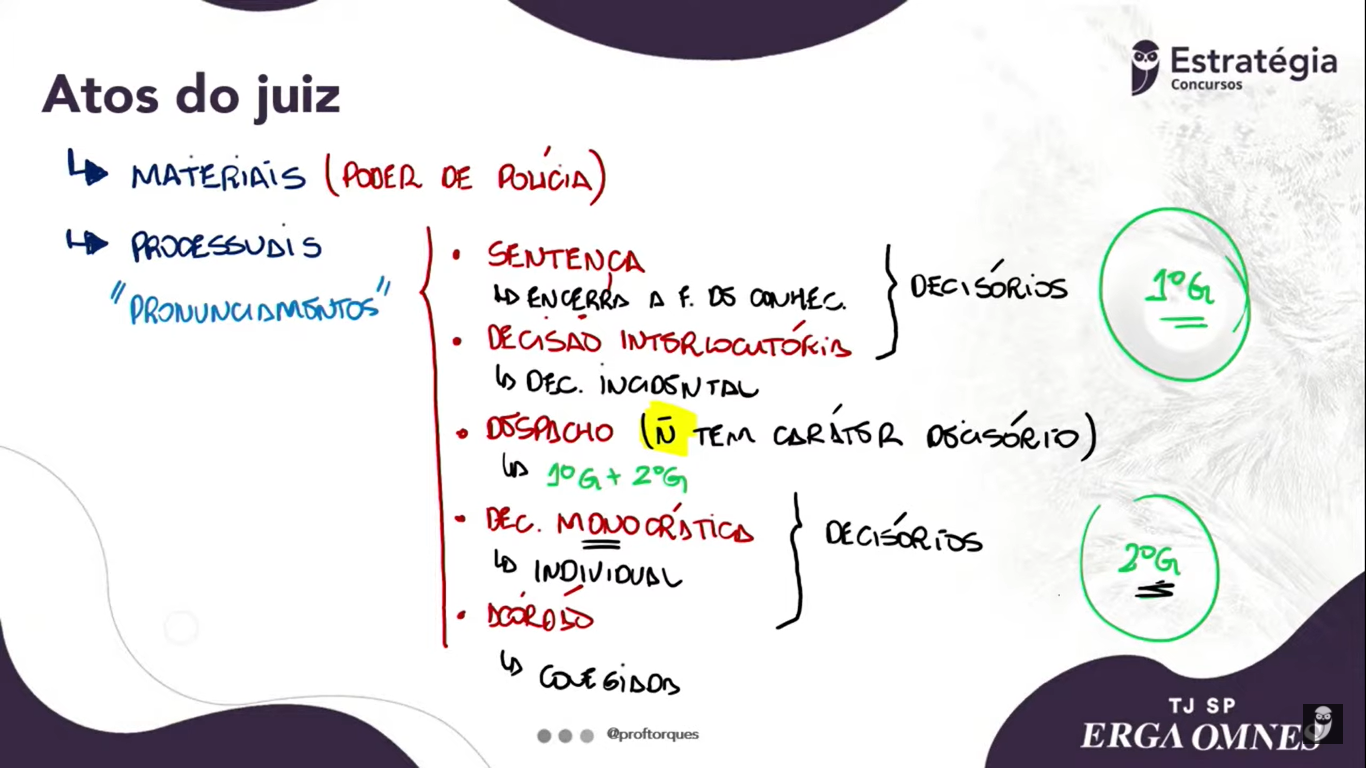 Estratégia
Concursos
Atos do juiz
↳ MATERIAIS (PODER DE POLÍCIA)
↳ PROCESSUAIS
"PRONUNCIAMENTOS"
• SENTENÇA
↳ ENCERRA A F. DE CONHEC.
• DECISÃO INTERLOCUTÓRIA
↳ DEC. INCIDENTAL
DECISÓRIOS
1ºG
• DESPACHO (Ñ TEM CARÁTER DECISÓRIO)
↳ 1ºG + 2ºG
• DEC. MONOCRÁTICA
↳ INDIVIDUAL
• ACÓRDÃO
↳ COLEGIADA
DECISÓRIOS
2ºG
@proftorques
TJ SP
ERGA OMNES